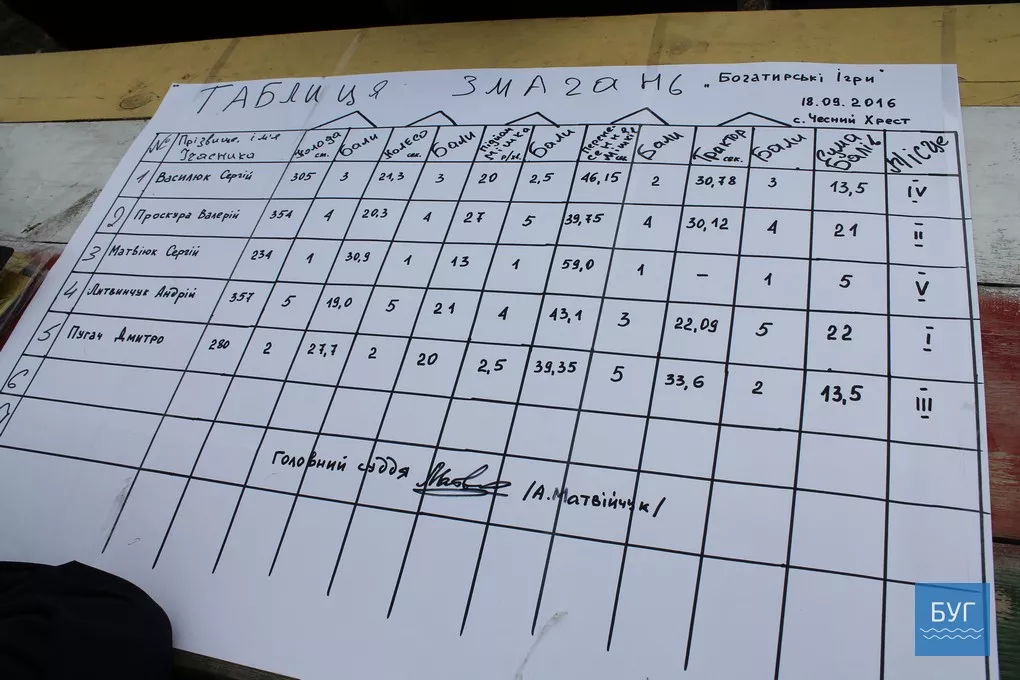 ТАБЛИЦЯ ЗМАГАНЬ „Богатирські Ігри"
18.09.2016
с. Чесний Хрест
№ Прізвище, ім'я Учасника Колода см. Бали Колесо сек. Бали Підйом Мішка р/х. Бали Перенесення мішків сек. Бали Трактор сек. Бали Сума Балів Місце
1 Василюк Сергій 305 3 21,3 3 20 2,5 46,15 2 30,78 3 13,5 IV
2 Проскура Валерій 354 4 20,3 4 27 5 39,75 4 30,12 4 21 II
3 Матвіюк Сергій 234 1 30,9 1 13 1 59,0 1 – 1 5 V
4 Литвинчук Андрій 357 5 19,0 5 21 4 43,1 3 22,09 5 22 I
5 Пугач Дмитро 280 2 27,7 2 20 2,5 39,35 5 33,6 2 13,5 III
6
7
Головний суддя /А.Матвійчук/
БУГ